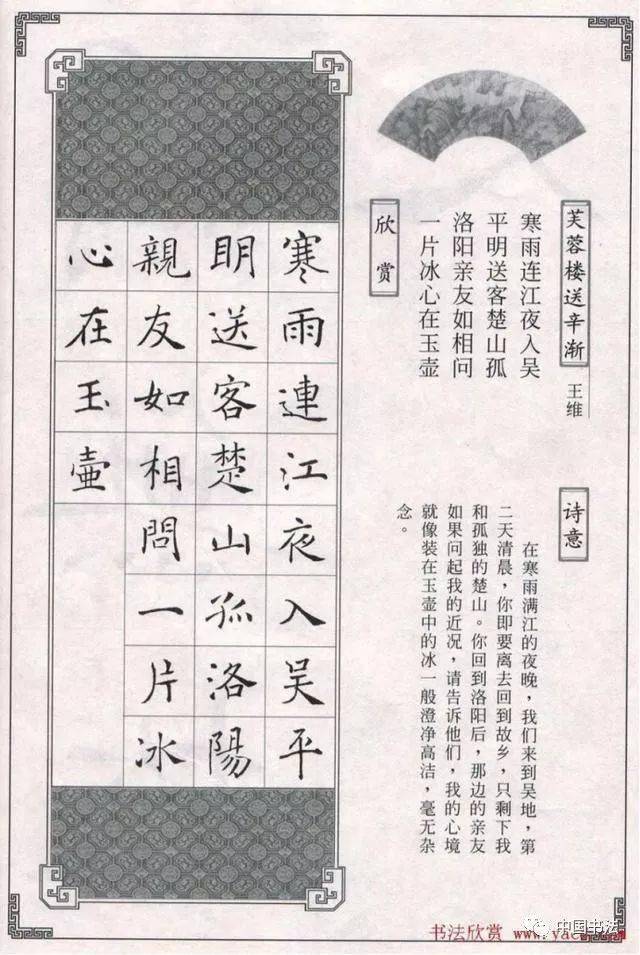 芙蓉楼送辛渐
王维
寒雨连江夜入吴
平明送客楚山孤
洛阳亲友如相问
一片冰心在玉壶
欣赏
诗意
在寒雨满江的夜晚，我们来到吴地，第
二天清晨，你即要离去回到故乡，只剩下我
和孤独的楚山。你回到洛阳后，那边的亲友
如果问起我的近况，请告诉他们，我的心境
就像装在玉壶中的冰一般澄净高洁，毫无杂
念。
寒雨連江夜入吴平
明送客楚山孤洛陽
親友如相問一片冰
心在玉壷
书法欣赏
中国书法